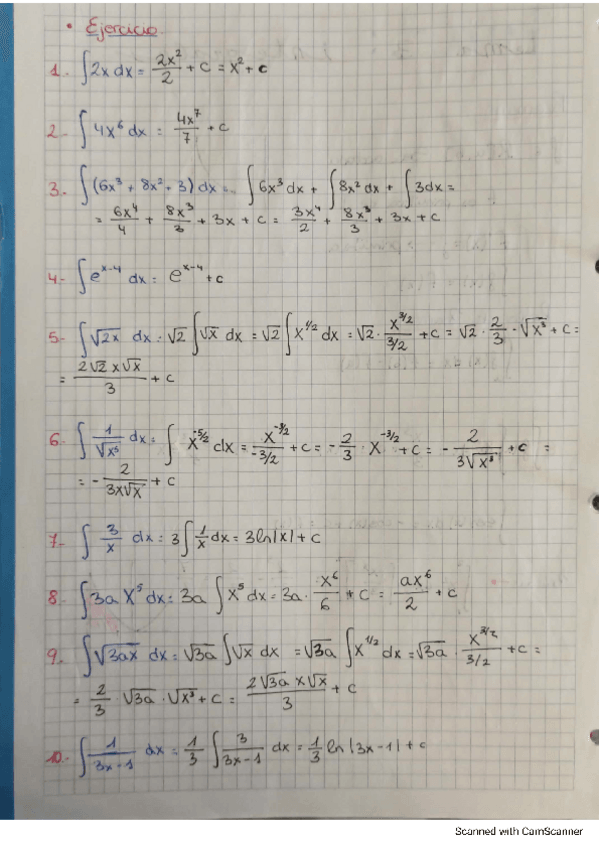 • Ejercicio.
1.- ∫2x dx = 2x²/2 + C = x² + c
2.- ∫4x⁶ dx = 4x⁷/7 + C
3.- ∫(6x³ + 8x² + 3) dx = ∫6x³ dx + ∫8x² dx + ∫3dx =
= 6x⁴/4 + 8x³/3 + 3x + C = 3x⁴/2 + 8x³/3 + 3x + C
4.- ∫eˣ⁻⁴ dx = eˣ⁻⁴ + C
5.- ∫√2x dx = √2 ∫√x dx = √2 ∫x^1/2 dx = √2 · x^3/2 / 3/2 + C = √2 · 2/3 · √x³ + C =
= 2√2 x√x / 3 + C
6.- ∫ 1/√x⁵ dx = ∫ x^-5/2 dx = x^-3/2 / -3/2 + C = -2/3 · x^-3/2 + C = - 2/3√x³ + C =
= - 2/3x√x + C
7.- ∫ 3/x dx = 3∫ 1/x dx = 3ln|x| + C
8.- ∫3a x⁵ dx = 3a ∫x⁵ dx = 3a · x⁶/6 + C = ax⁶/2 + C
9.- ∫√3ax dx = √3a ∫√x dx = √3a ∫x^1/2 dx = √3a · x^3/2 / 3/2 + C =
= 2/3 · √3a · √x³ + C = 2√3a x√x / 3 + C
10.- ∫ 1/3x-1 dx = 1/3 ∫ 3/3x-1 dx = 1/3 ln|3x-1| + C
Scanned with CamScanner